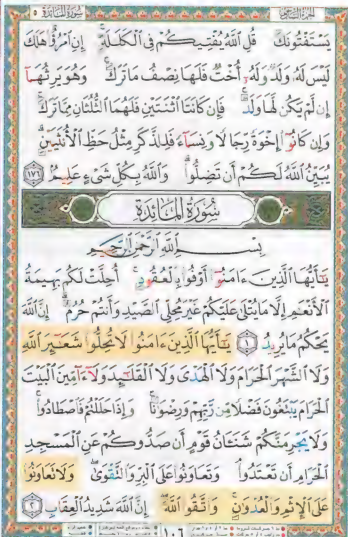 سُورَةُ المَائِدَة ٥
يَسْتَفْتُونَكَ قُلِ اللَّهُ يُفْتِيكُمْ فِي الْكَلَالَةِ إِنِ امْرُؤٌا هَلَكَ
لَيْسَ لَهُ وَلَدٌ وَلَهُ أُخْتٌ فَلَهَا نِصْفُ مَا تَرَكَ وَهُوَ يَرِثُهَا
إِن لَّمْ يَكُن لَّهَا وَلَدٌ فَإِن كَانَتَا اثْنَتَيْنِ فَلَهُمَا الثُّلُثَانِ مِمَّا تَرَكَ
وَإِن كَانُوا إِخْوَةً رِّجَالًا وَنِسَاءً فَلِلذَّكَرِ مِثْلُ حَظِّ الْأُنثَيَيْنِ
يُبَيِّنُ اللَّهُ لَكُمْ أَن تَضِلُّوا وَاللَّهُ بِكُلِّ شَيْءٍ عَلِيمٌ ١٧٦
سُورَةُ المَائِدَة
بِسْمِ اللَّهِ الرَّحْمَٰنِ الرَّحِيمِ
يَٰأَيُّهَا الَّذِينَ ءَامَنُوا أَوْفُوا بِالْعُقُودِ أُحِلَّتْ لَكُم بَهِيمَةُ
الْأَنْعَٰمِ إِلَّا مَا يُتْلَىٰ عَلَيْكُمْ غَيْرَ مُحِلِّي الصَّيْدِ وَأَنتُمْ حُرُمٌ إِنَّ اللَّهَ
يَحْكُمُ مَا يُرِيدُ ١ يَٰأَيُّهَا الَّذِينَ ءَامَنُوا لَا تُحِلُّوا شَعَٰئِرَ اللَّهِ
وَلَا الشَّهْرَ الْحَرَامَ وَلَا الْهَدْيَ وَلَا الْقَلَٰئِدَ وَلَا ءَامِّينَ الْبَيْتَ
الْحَرَامَ يَبْتَغُونَ فَضْلًا مِّن رَّبِّهِمْ وَرِضْوَٰنًا وَإِذَا حَلَلْتُمْ فَاصْطَادُوا
وَلَا يَجْرِمَنَّكُمْ شَنَـَٔانُ قَوْمٍ أَن صَدُّوكُمْ عَنِ الْمَسْجِدِ
الْحَرَامِ أَن تَعْتَدُوا وَتَعَاوَنُوا عَلَى الْبِرِّ وَالتَّقْوَىٰ وَلَا تَعَاوَنُوا
عَلَى الْإِثْمِ وَالْعُدْوَٰنِ وَاتَّقُوا اللَّهَ إِنَّ اللَّهَ شَدِيدُ الْعِقَابِ ٢
١٠٦